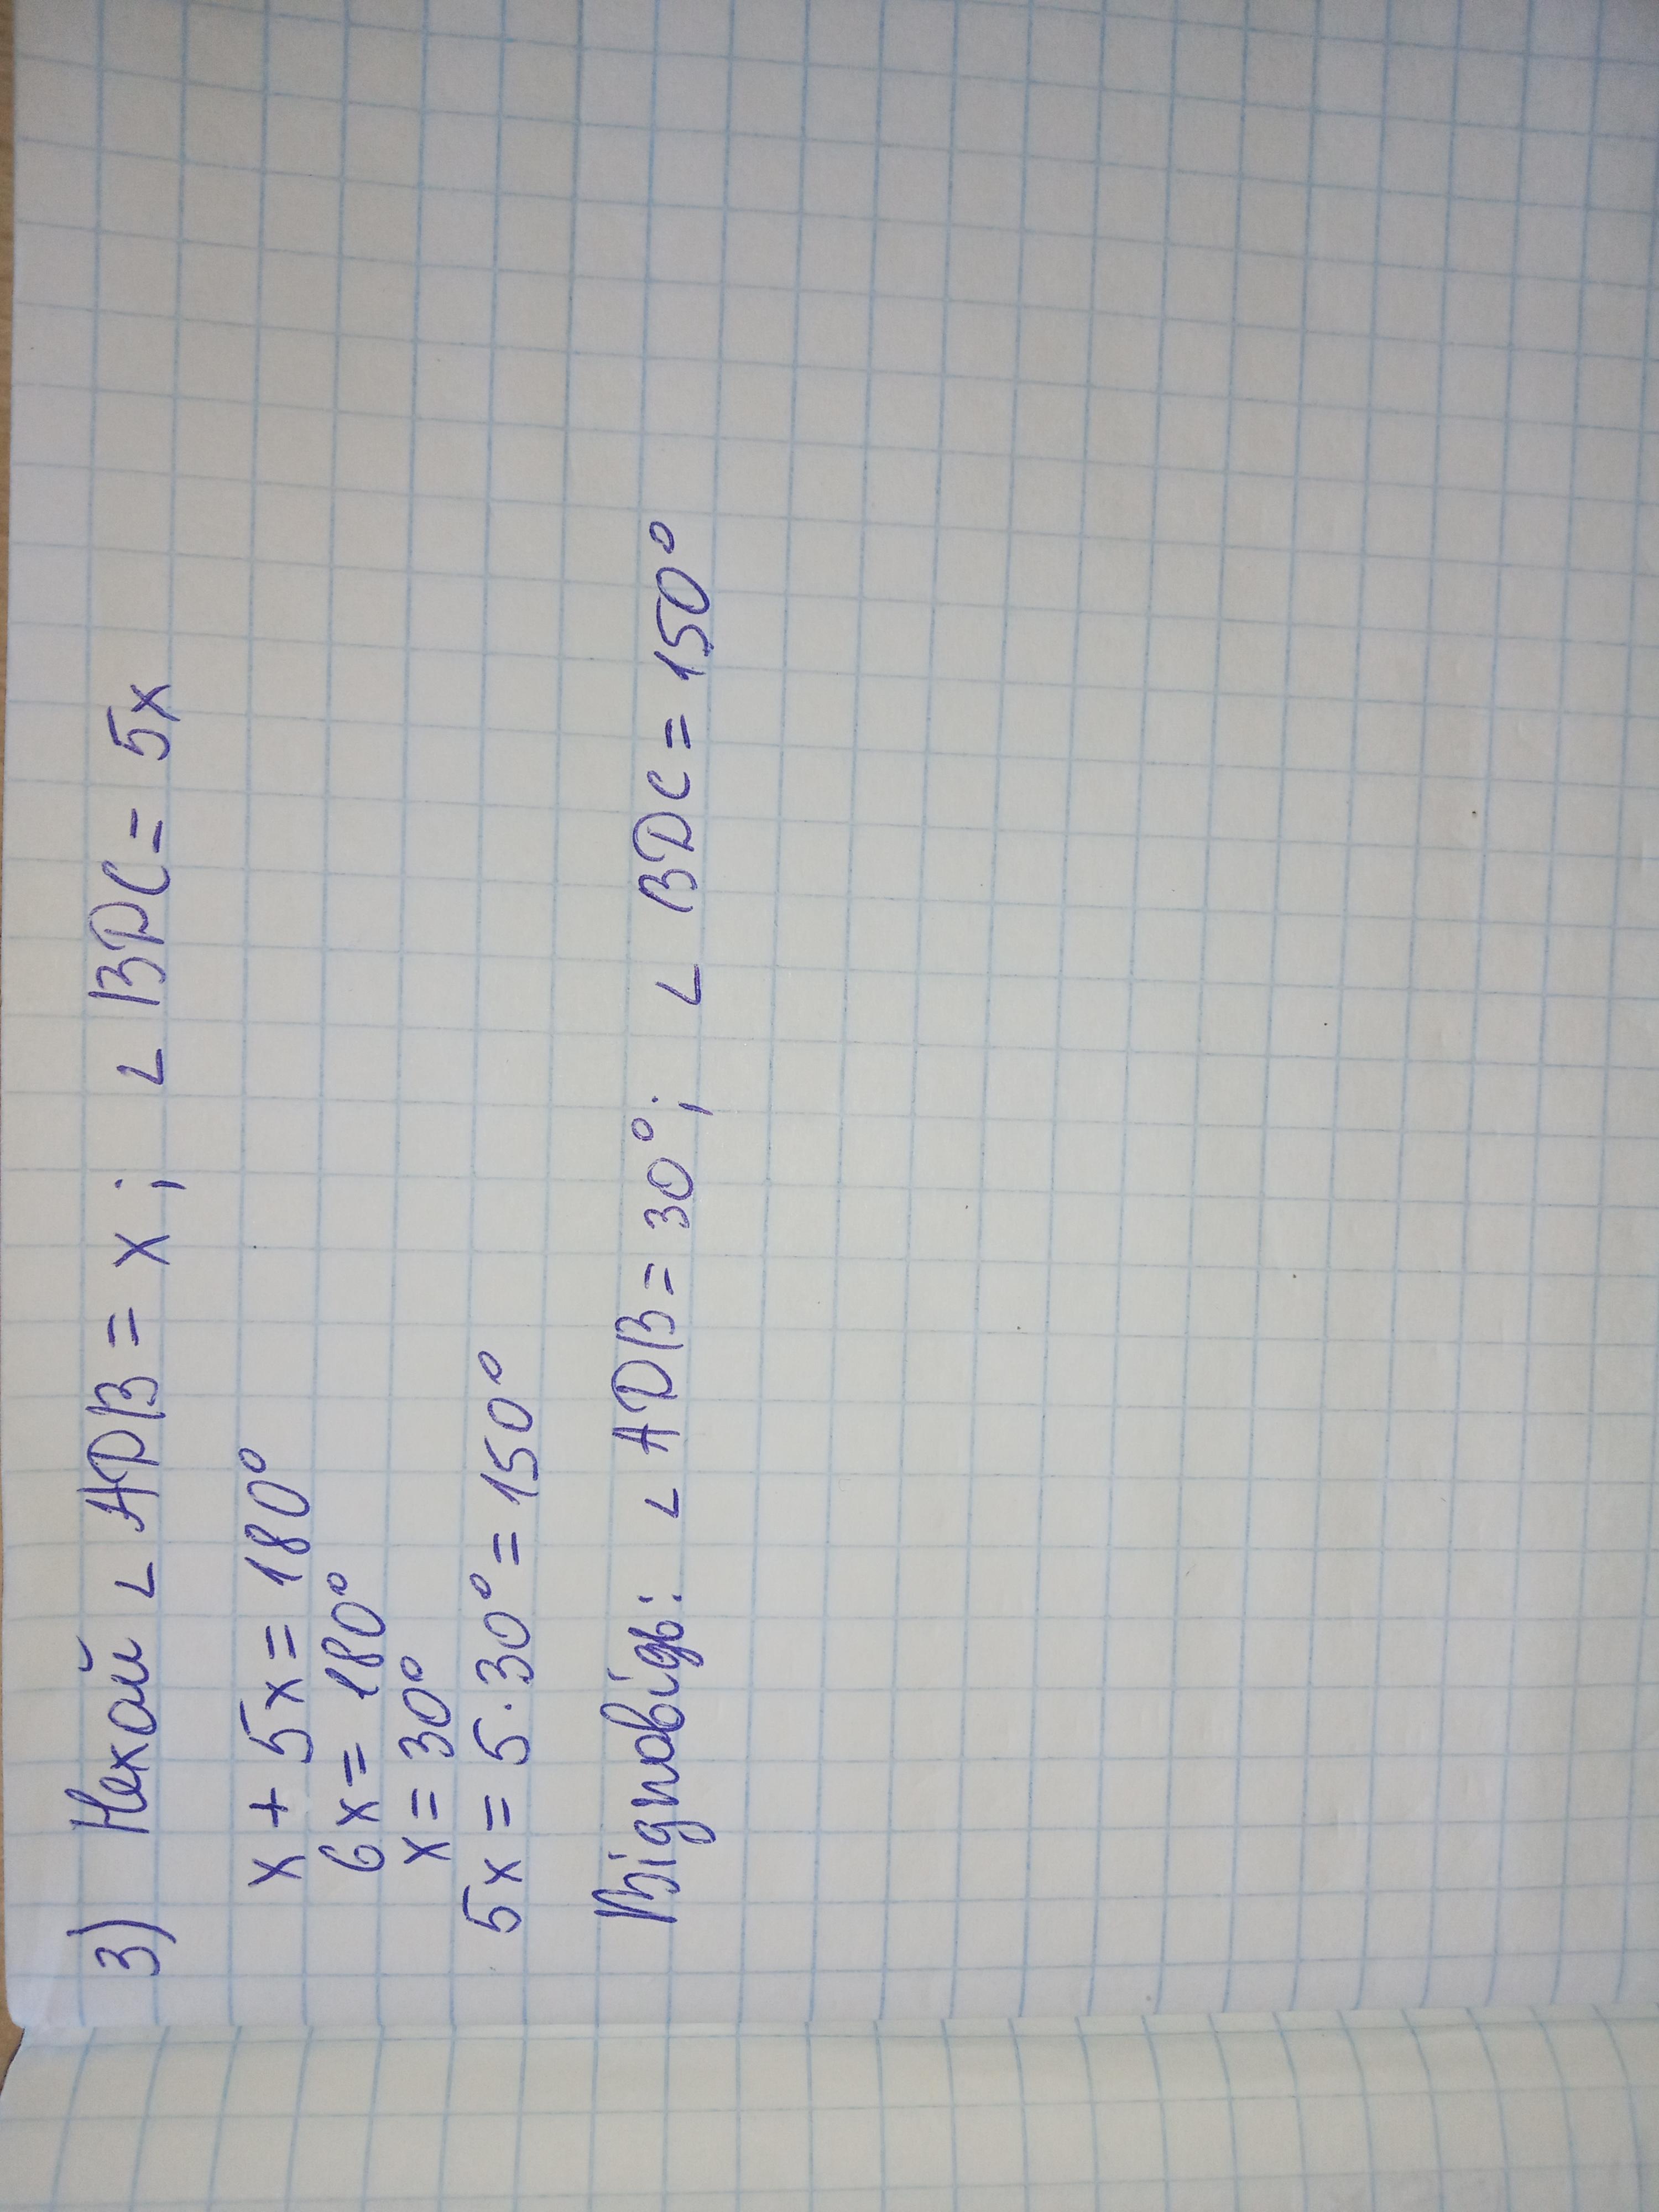 3) Нехай ∠ ADB = x; ∠ BDC = 5x
x + 5x = 180°
6x = 180°
x = 30°
5x = 5·30° = 150°
Відповідь: ∠ ADB = 30°; ∠ BDC = 150°